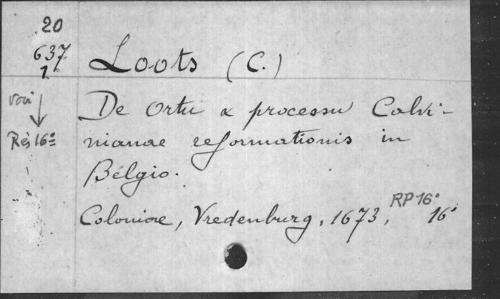 20
637
1
Loots (C.)
voir
Rés 16º
De Ortu & processu Calvi-
nianae reformationis in
Belgio.
Coloniae, Vredenburg, 1673, RP 16º 16º